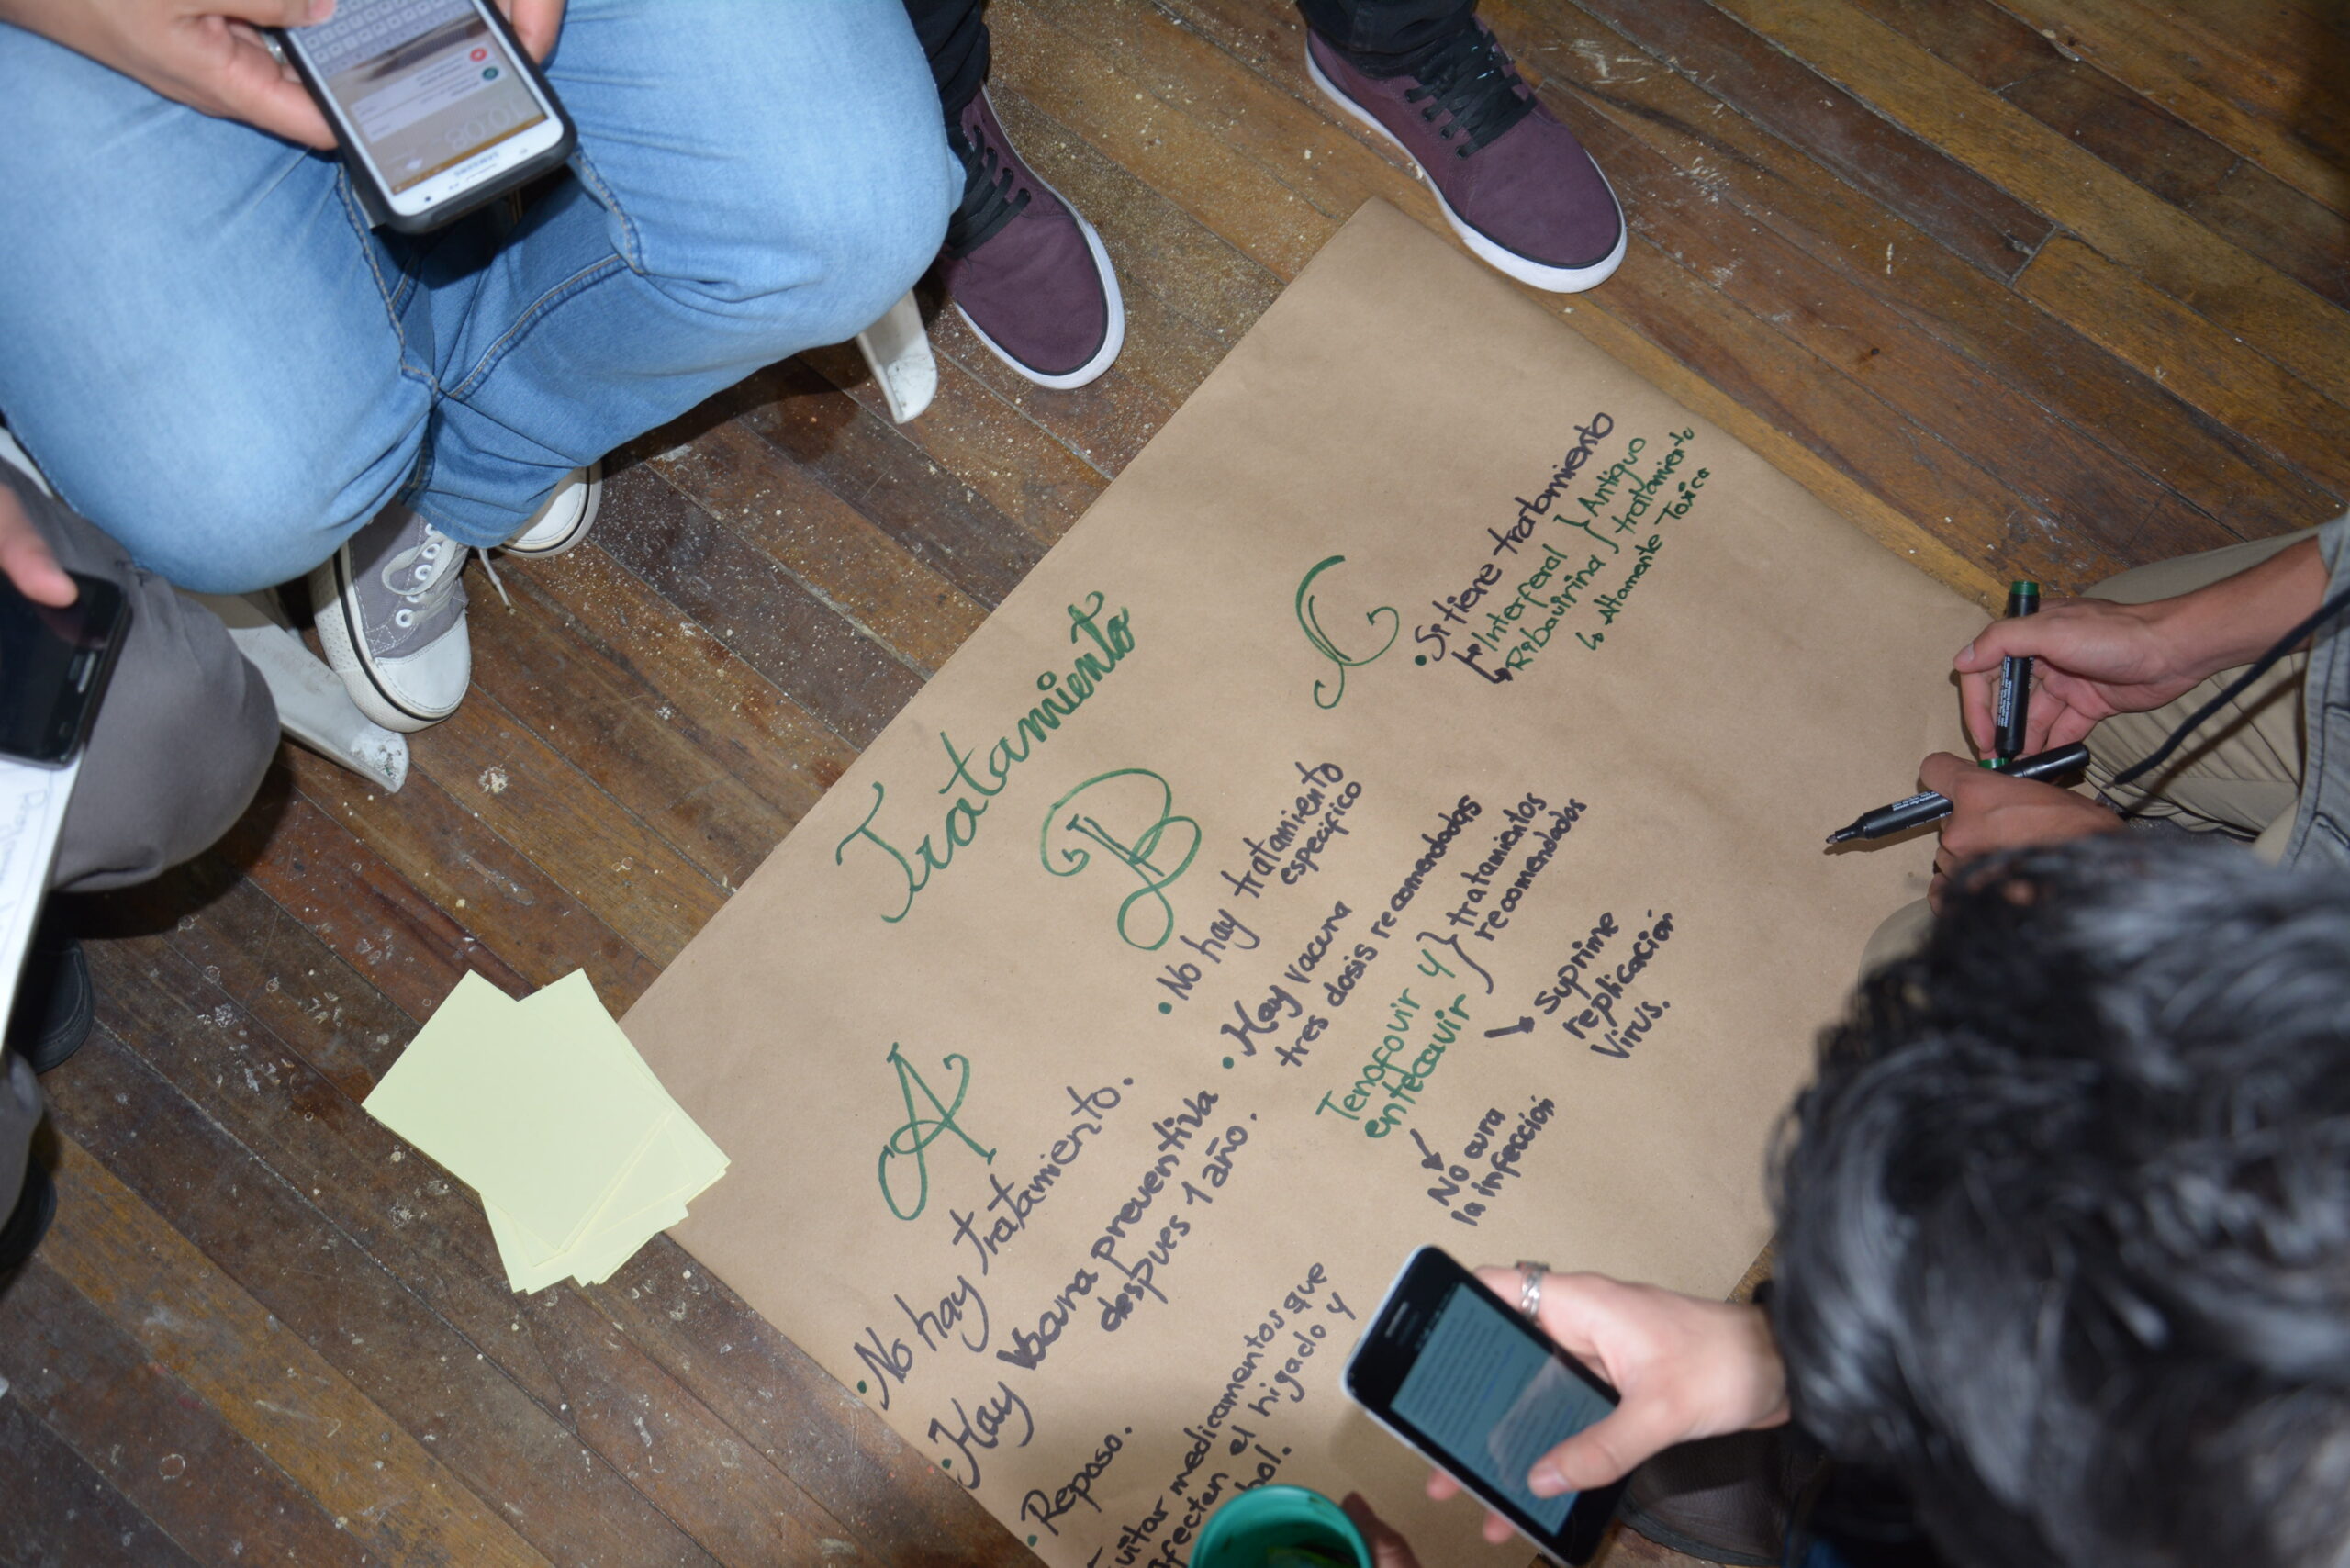 Tratamiento
A
• No hay tratamiento.
• Hay vacuna preventiva
despues 1 año.
• Reposo.
evitar medicamentos que
afecten el higado y
B
• No hay tratamiento
especifico
• Hay vacuna
tres dosis recomendadas
Tenofovir y
entecavir
tratamientos
recomendados
Suprime
replicación
Virus.
No cura
la infección
C
• Si tiene tratamiento
Interferal
Ribavirina
Antiguo
tratamiento
Altamente Toxico
SAMSUNG
10:08